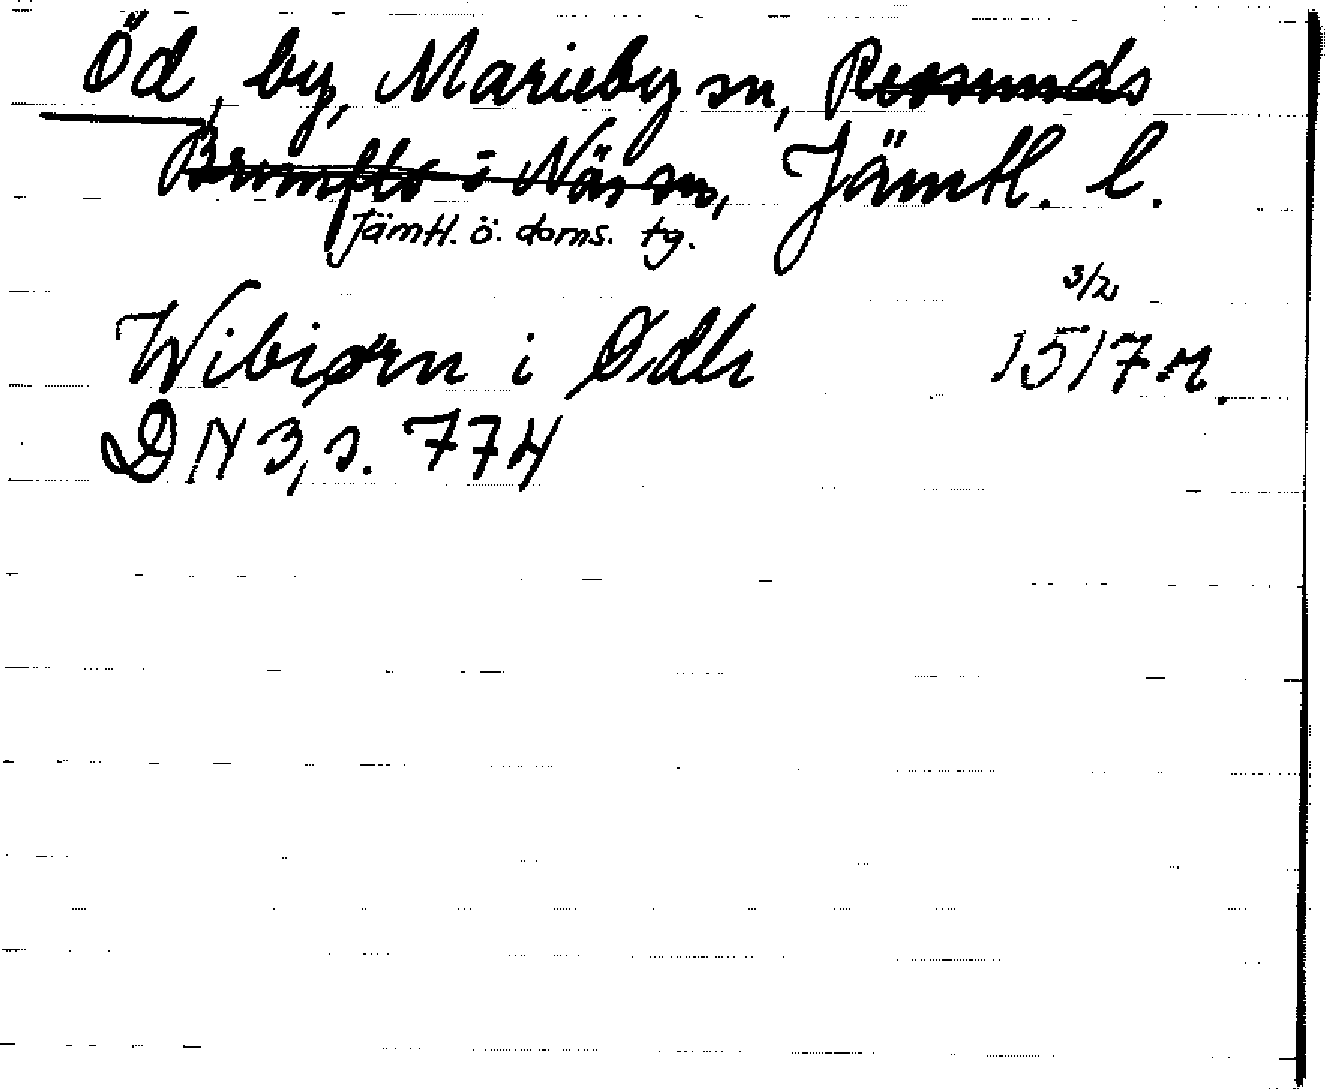 Öd, by, Marieby sn, Revsunds
Brunflo o Näs sn, Jämtl. l.
Jämtl. ö. doms. tg.
3/2
Wibiørn i Ødh 1517 n.
DN 3, s. 774